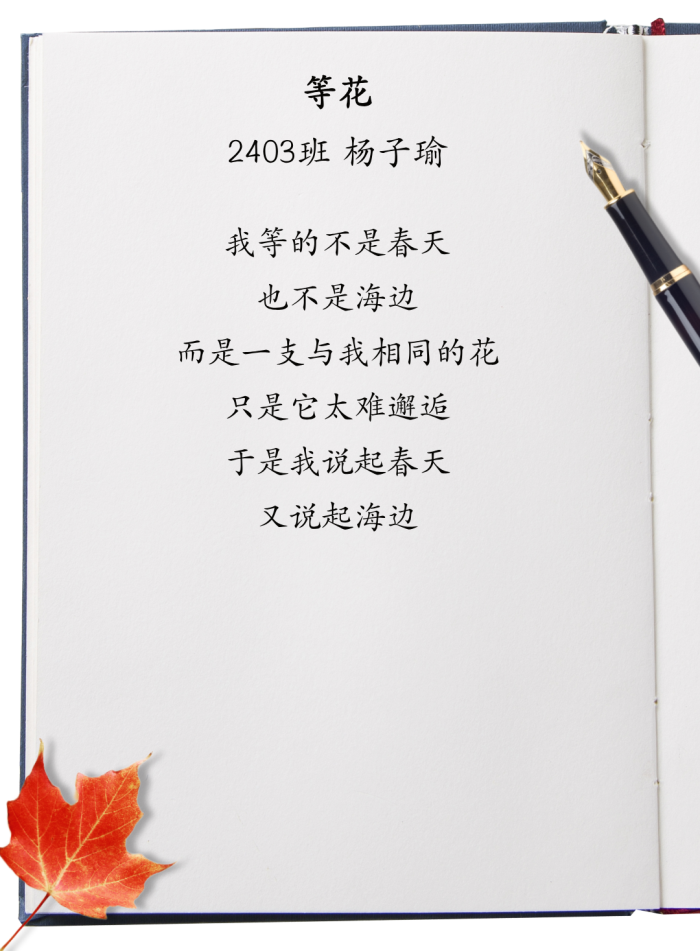 等花
2403班 杨子瑜
我等的不是春天
也不是海边
而是一支与我相同的花
只是它太难邂逅
于是我说起春天
又说起海边